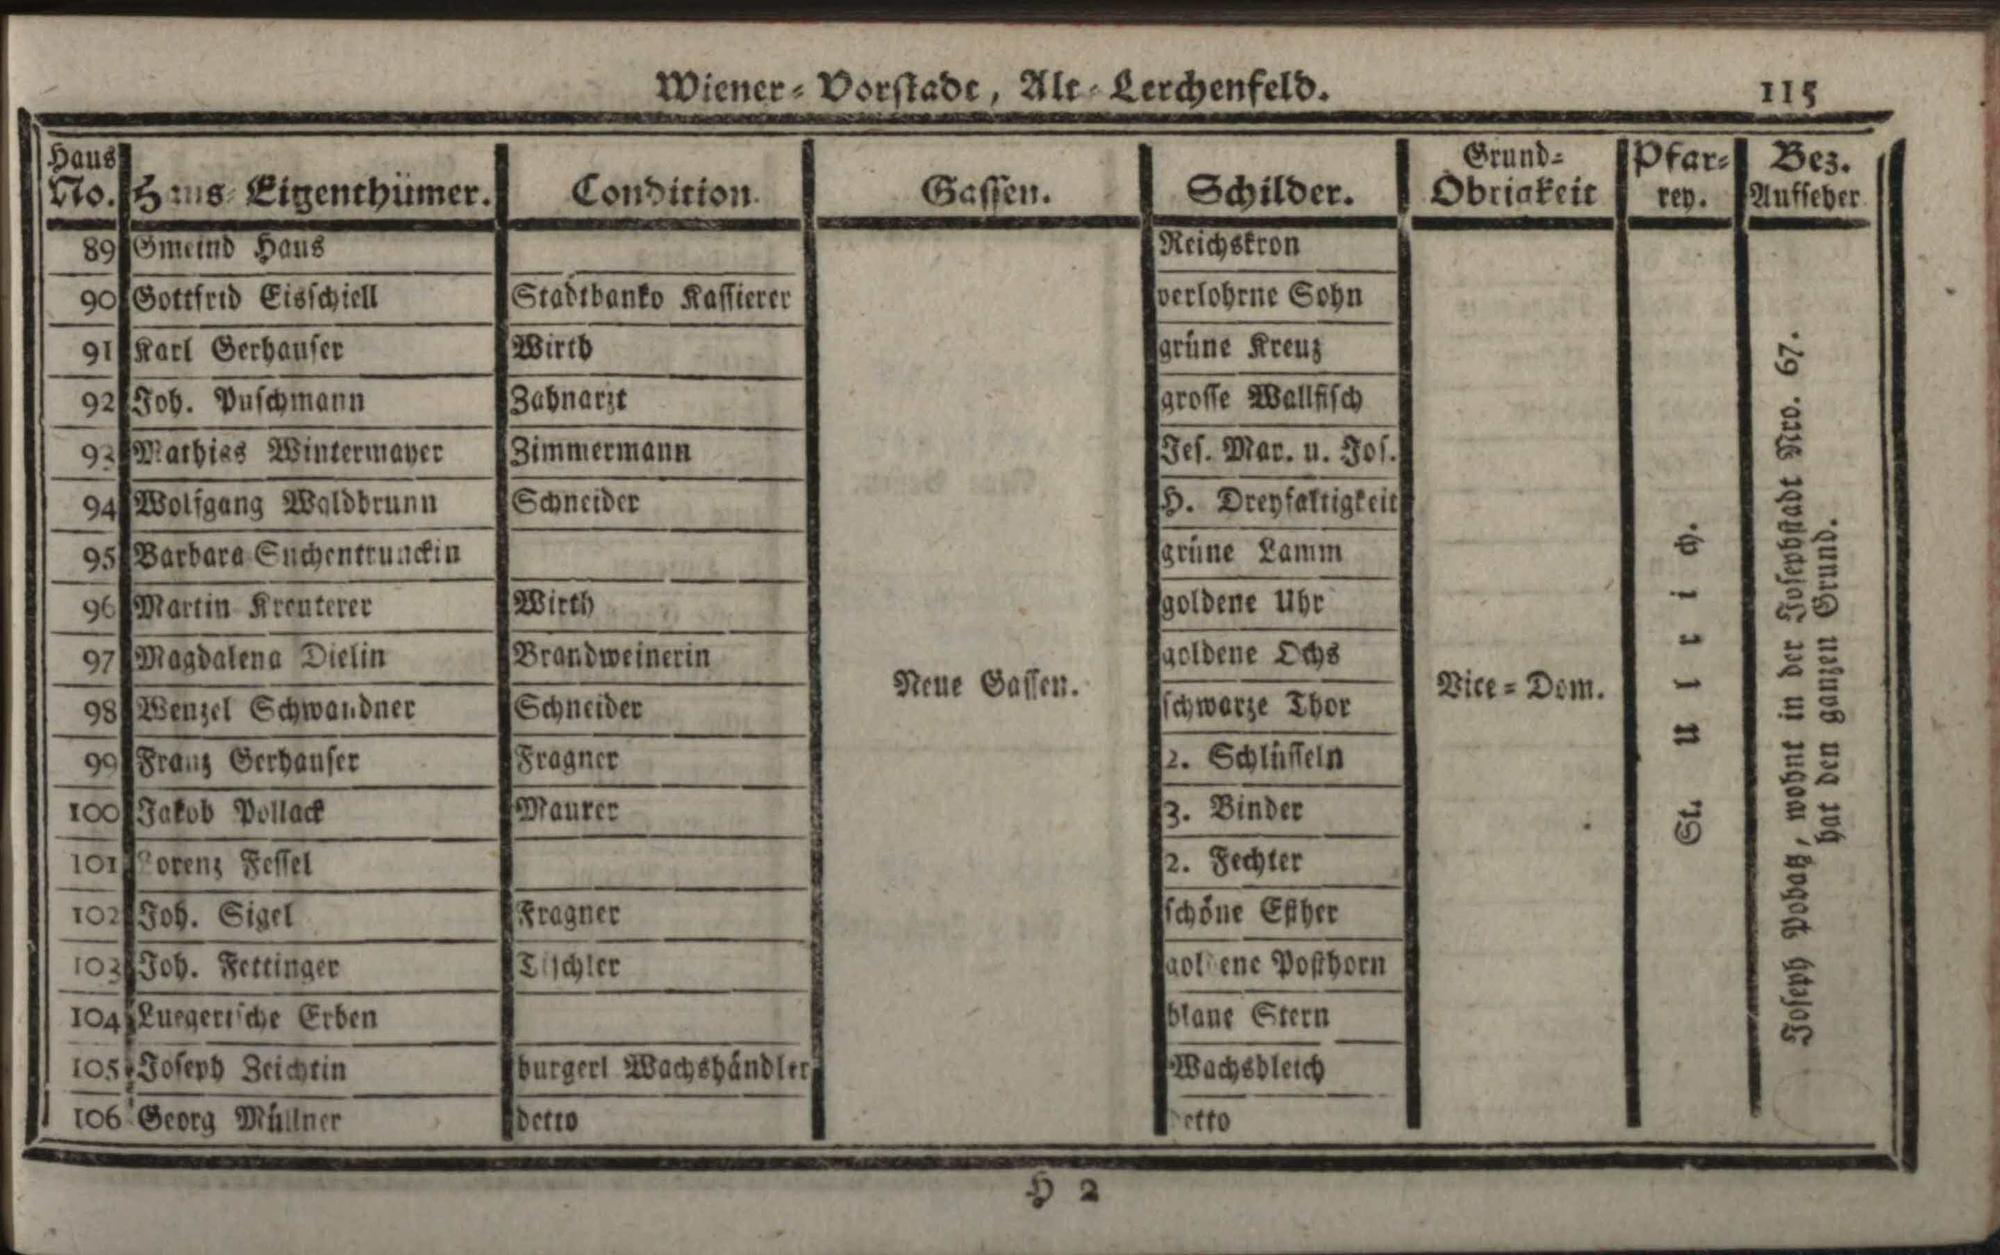 Wiener-Vorstadt, Alt-Lerchenfeld. 115
Haus No. Haus-Eigenthümer. Condition. Gassen. Schilder. Grund-Obrigkeit Pfar-rey. Bez. Aufseher
89 Gmeind Haus Reichskron
90 Gottfrid Eisschiell Stadtbanko Kassierer verlohrne Sohn
91 Karl Gerhauser Wirth grüne Kreuz
92 Joh. Puschmann Zahnarzt grosse Wallfisch
93 Mathias Wintermayer Zimmermann Jes. Mar. u. Jos.
94 Wolfgang Waldbrunn Schneider H. Dreyfaltigkeit
95 Barbara Suchentrunckin grüne Lamm
96 Martin Kreuterer Wirth goldene Uhr
97 Magdalena Dielin Brandweinerin goldene Ochs
98 Wenzel Schwandner Schneider schwarze Thor
99 Franz Gerhauser Fragner 2. Schlüsseln
100 Jakob Pollack Maurer 3. Binder
101 Lorenz Fessel 2. Fechter
102 Joh. Sigel Fragner schöne Esther
103 Joh. Fettinger Tischler goldene Posthorn
104 Luegerische Erben blaue Stern
105 Joseph Zeichtin burgerl Wachshändler Wachsbleich
106 Georg Müllner detto detto
Neue Gassen.
Vice-Dom.
St. Ulrich.
Joseph Pobatz, wohnt in der Josephstadt Nro. 67.
hat den ganzen Grund.
H 2